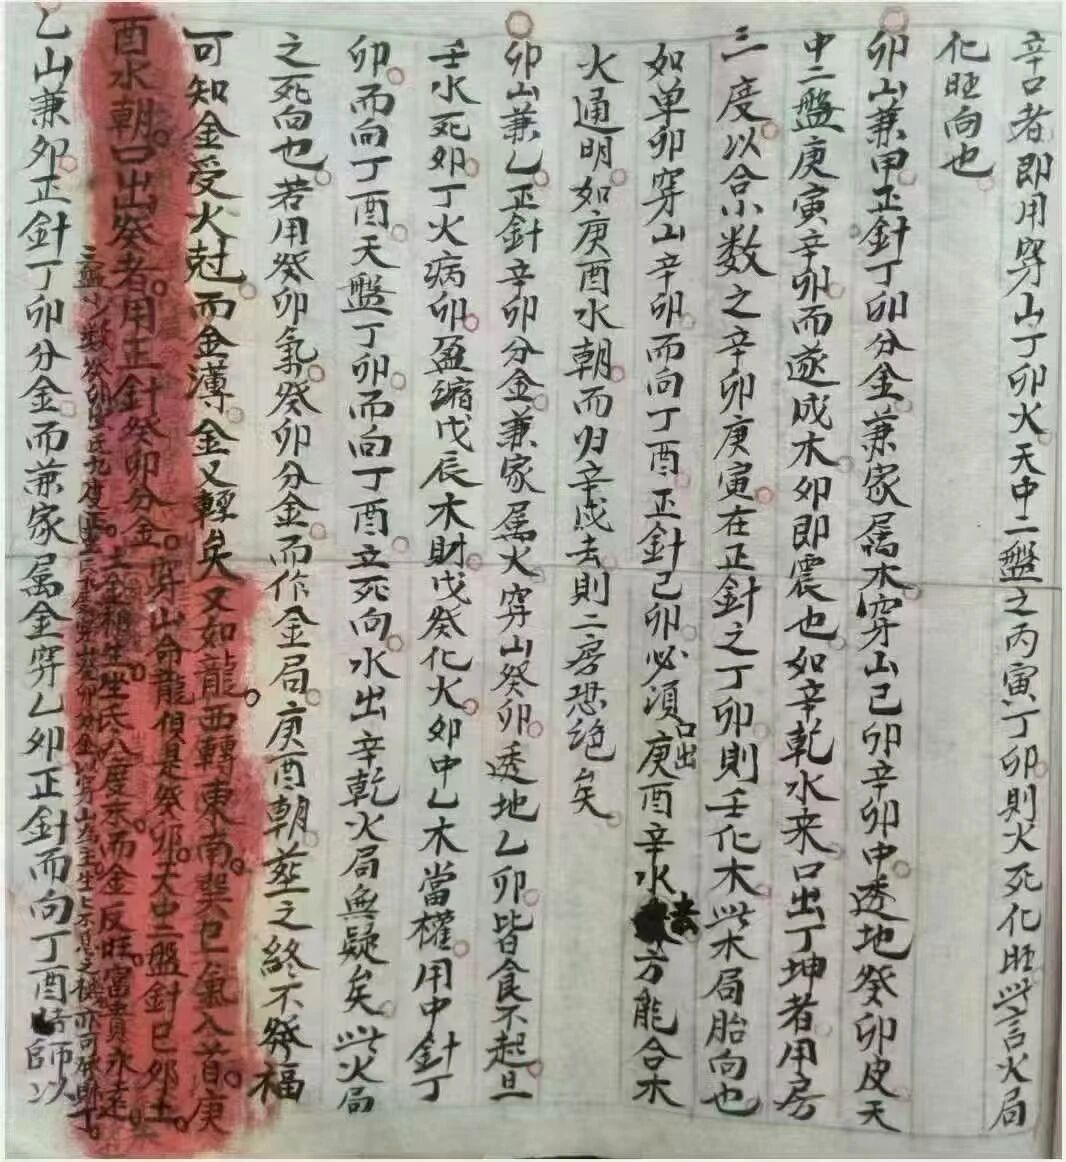 辛口者即用穿山丁卯火天中二盤之丙寅丁卯則火死化旺此言火局
化旺向也
卯山兼甲正針丁卯分金兼家属木穿山己卯辛卯中透地癸卯度天
中二盤庚寅辛卯而遂成木卯即震也如辛乾水来口出丁坤者用房
三度以合小数之辛卯庚寅在正針之丁卯則壬化木此木局胎向也
如单卯穿山辛卯而向丁酉正針己卯必須口出庚酉辛水去方能合木
火通明如庚酉水朝而归辛戌去則二房恐绝矣
卯山兼乙正針辛卯分金兼家属火穿山癸卯透地乙卯皆食不起旦
壬水死卯丁火病卯盈縮戊辰木財戊癸化火卯中乙木當權用中針丁
卯而向丁酉天盤丁卯而向丁酉立死向水出辛乾火局無疑矣此火局
之死向也若用癸卯氣癸卯分金而作金局庚酉朝塟之終不發福
可知金受火尅而金薄金又輕矣又如龍西轉東南巽巳氣入首庚
酉水朝口出癸者用正針癸卯分金穿山命龍俱是癸卯天中二盤針己卯土
土金相生坐氐八度木而金反旺富貴永遠
乙山兼卯正針丁卯分金而兼家属金穿乙卯正針而向丁酉時師以